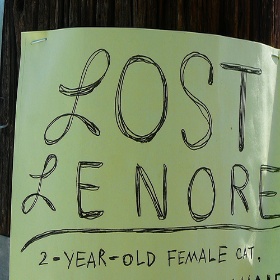 LOST
LENORE
2-YEAR-OLD FEMALE CAT.